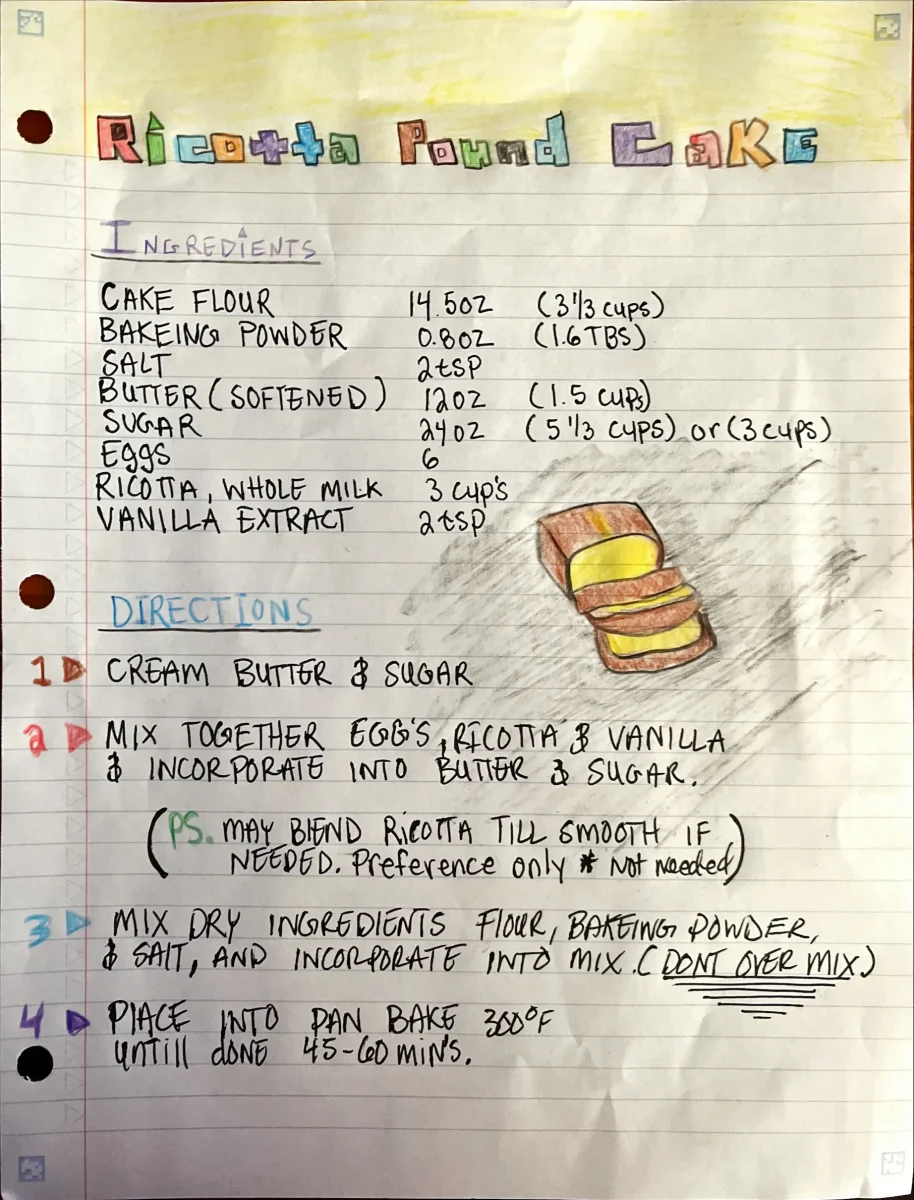 Ricotta Pound Cake
INGREDIENTS
CAKE FLOUR 14.5oz (3 1/3 cups)
BAKEING POWDER 0.8oz (1.6 TBS)
SALT 2tsp
BUTTER (SOFTENED) 12oz (1.5 cups)
SUGAR 24oz (5 1/3 cups) or (3 cups)
Eggs 6
RICOTTA, WHOLE MILK 3 cup's
VANILLA EXTRACT 2tsp
DIRECTIONS
1 CREAM BUTTER & SUGAR
2 MIX TOGETHER EGG'S, RICOTTA & VANILLA
& INCORPORATE INTO BUTTER & SUGAR.
(PS. MAY BlEND RICOTTA TILL SMOOTH IF
NEEDED. Preference only * Not needed)
3 MIX DRY INGREDIENTS FLOUR, BAKEING POWDER,
& SALT, AND INCORPORATE INTO MIX. (DONT OVER MIX)
4 PlACE INTO PAN BAKE 300°F
UNTILL DONE 45-60 MIN'S.